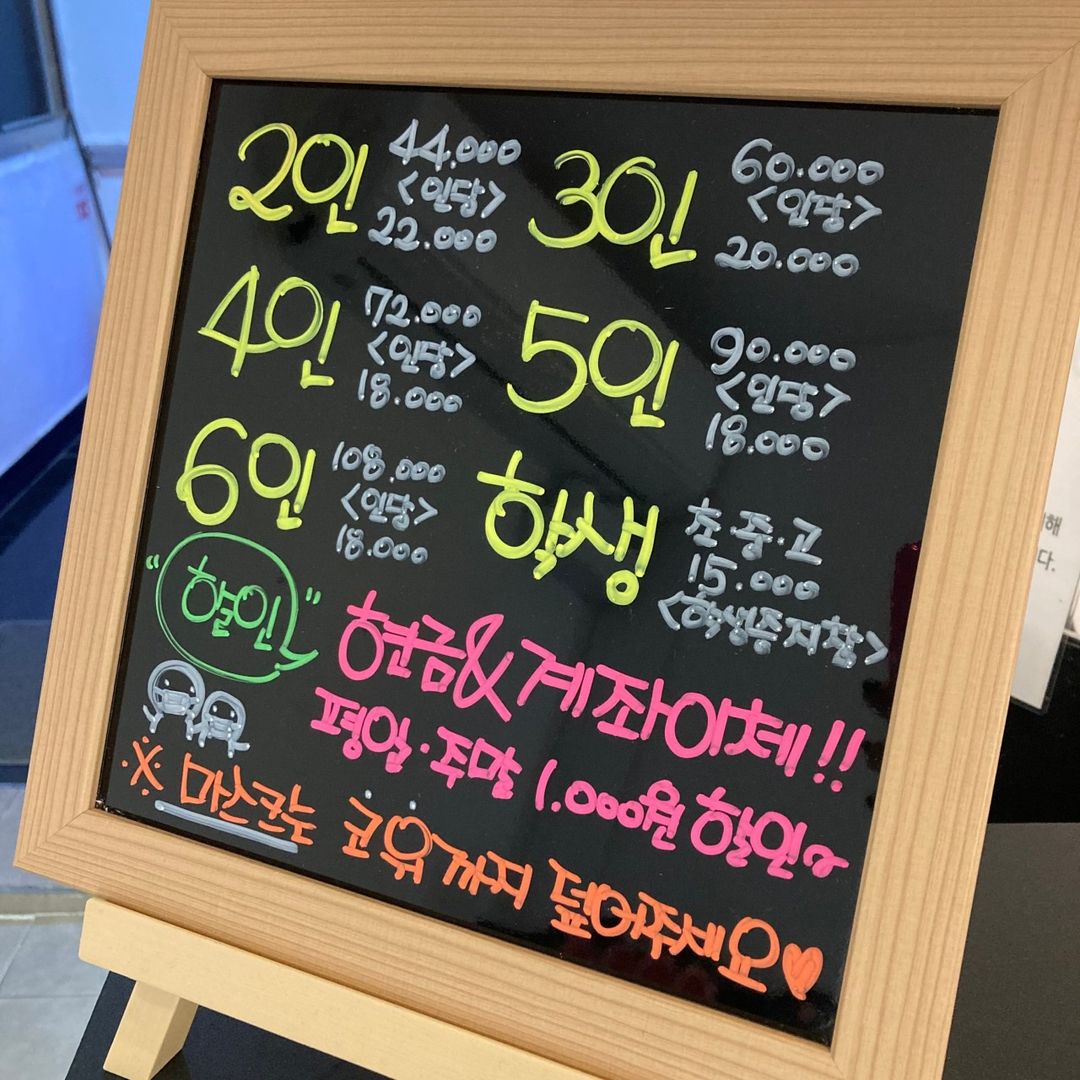 2인 44.000
<인당>
22.000
3인 60.000
<인당>
20.000
4인 72.000
<인당>
18.000
5인 90.000
<인당>
18.000
6인 108.000
<인당>
18.000
학생 초.중.고
15.000
<학생증지참>
"할인"
현금&계좌이체!!
평일·주말 1.000원 할인~
※ 마스크는 코 위까지 덮어주세요♥
해
다.